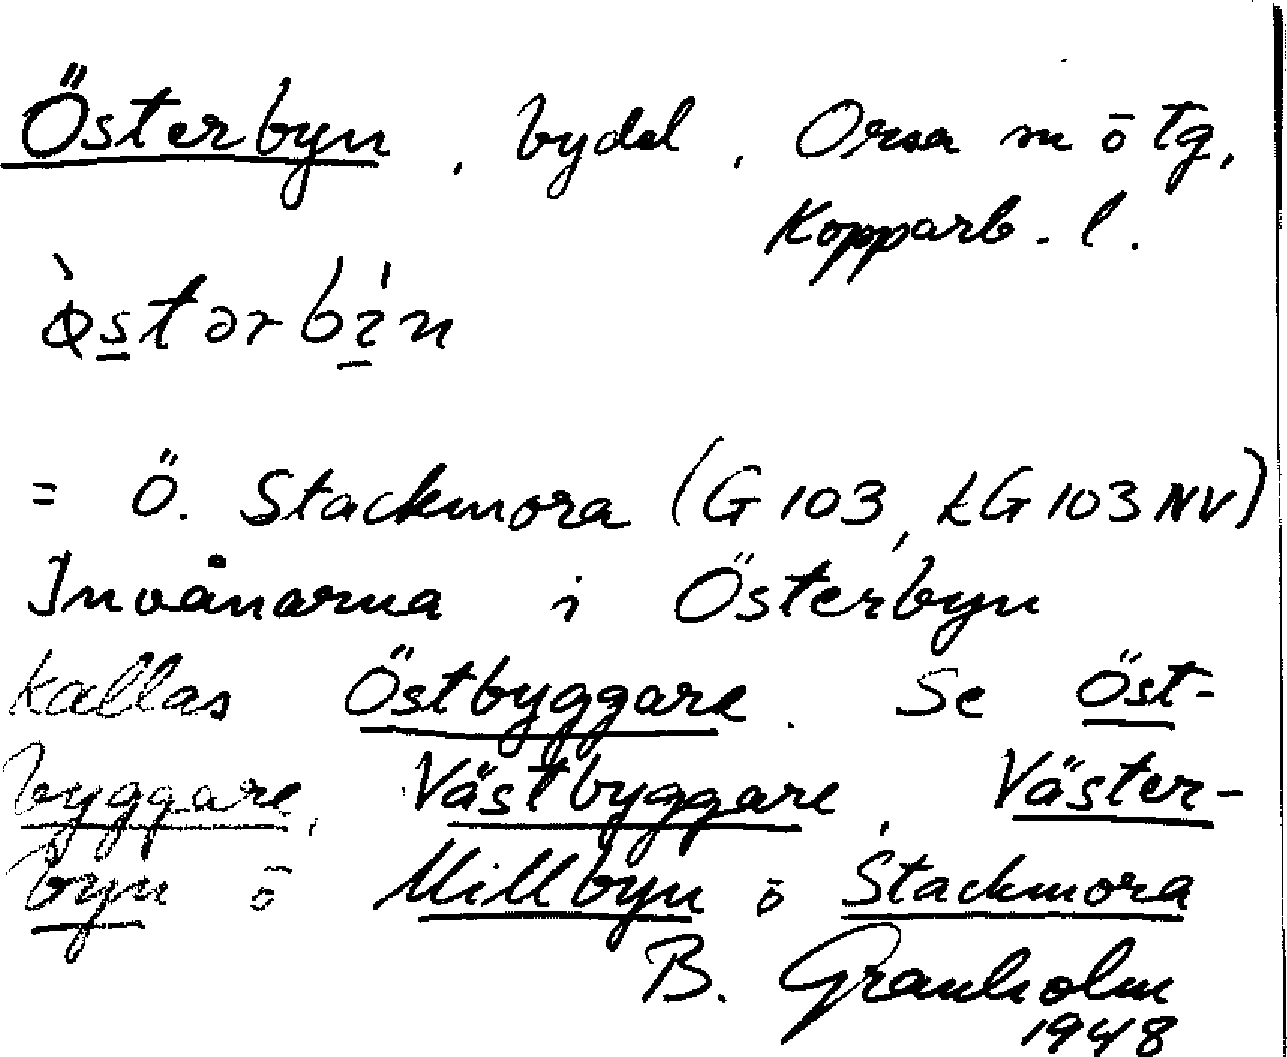 Österbyn, bydel, Orsa sn ō tg,
Kopparb. l.
= Ö. Stackmora (G 103, LG 103 NV)
Invånarna i Österbyn
kallas Östbyggare. Se Öst-
byggare, Västbyggare, Väster-
byn ō Millbyn ō Stackmora
B. Granholm
1948